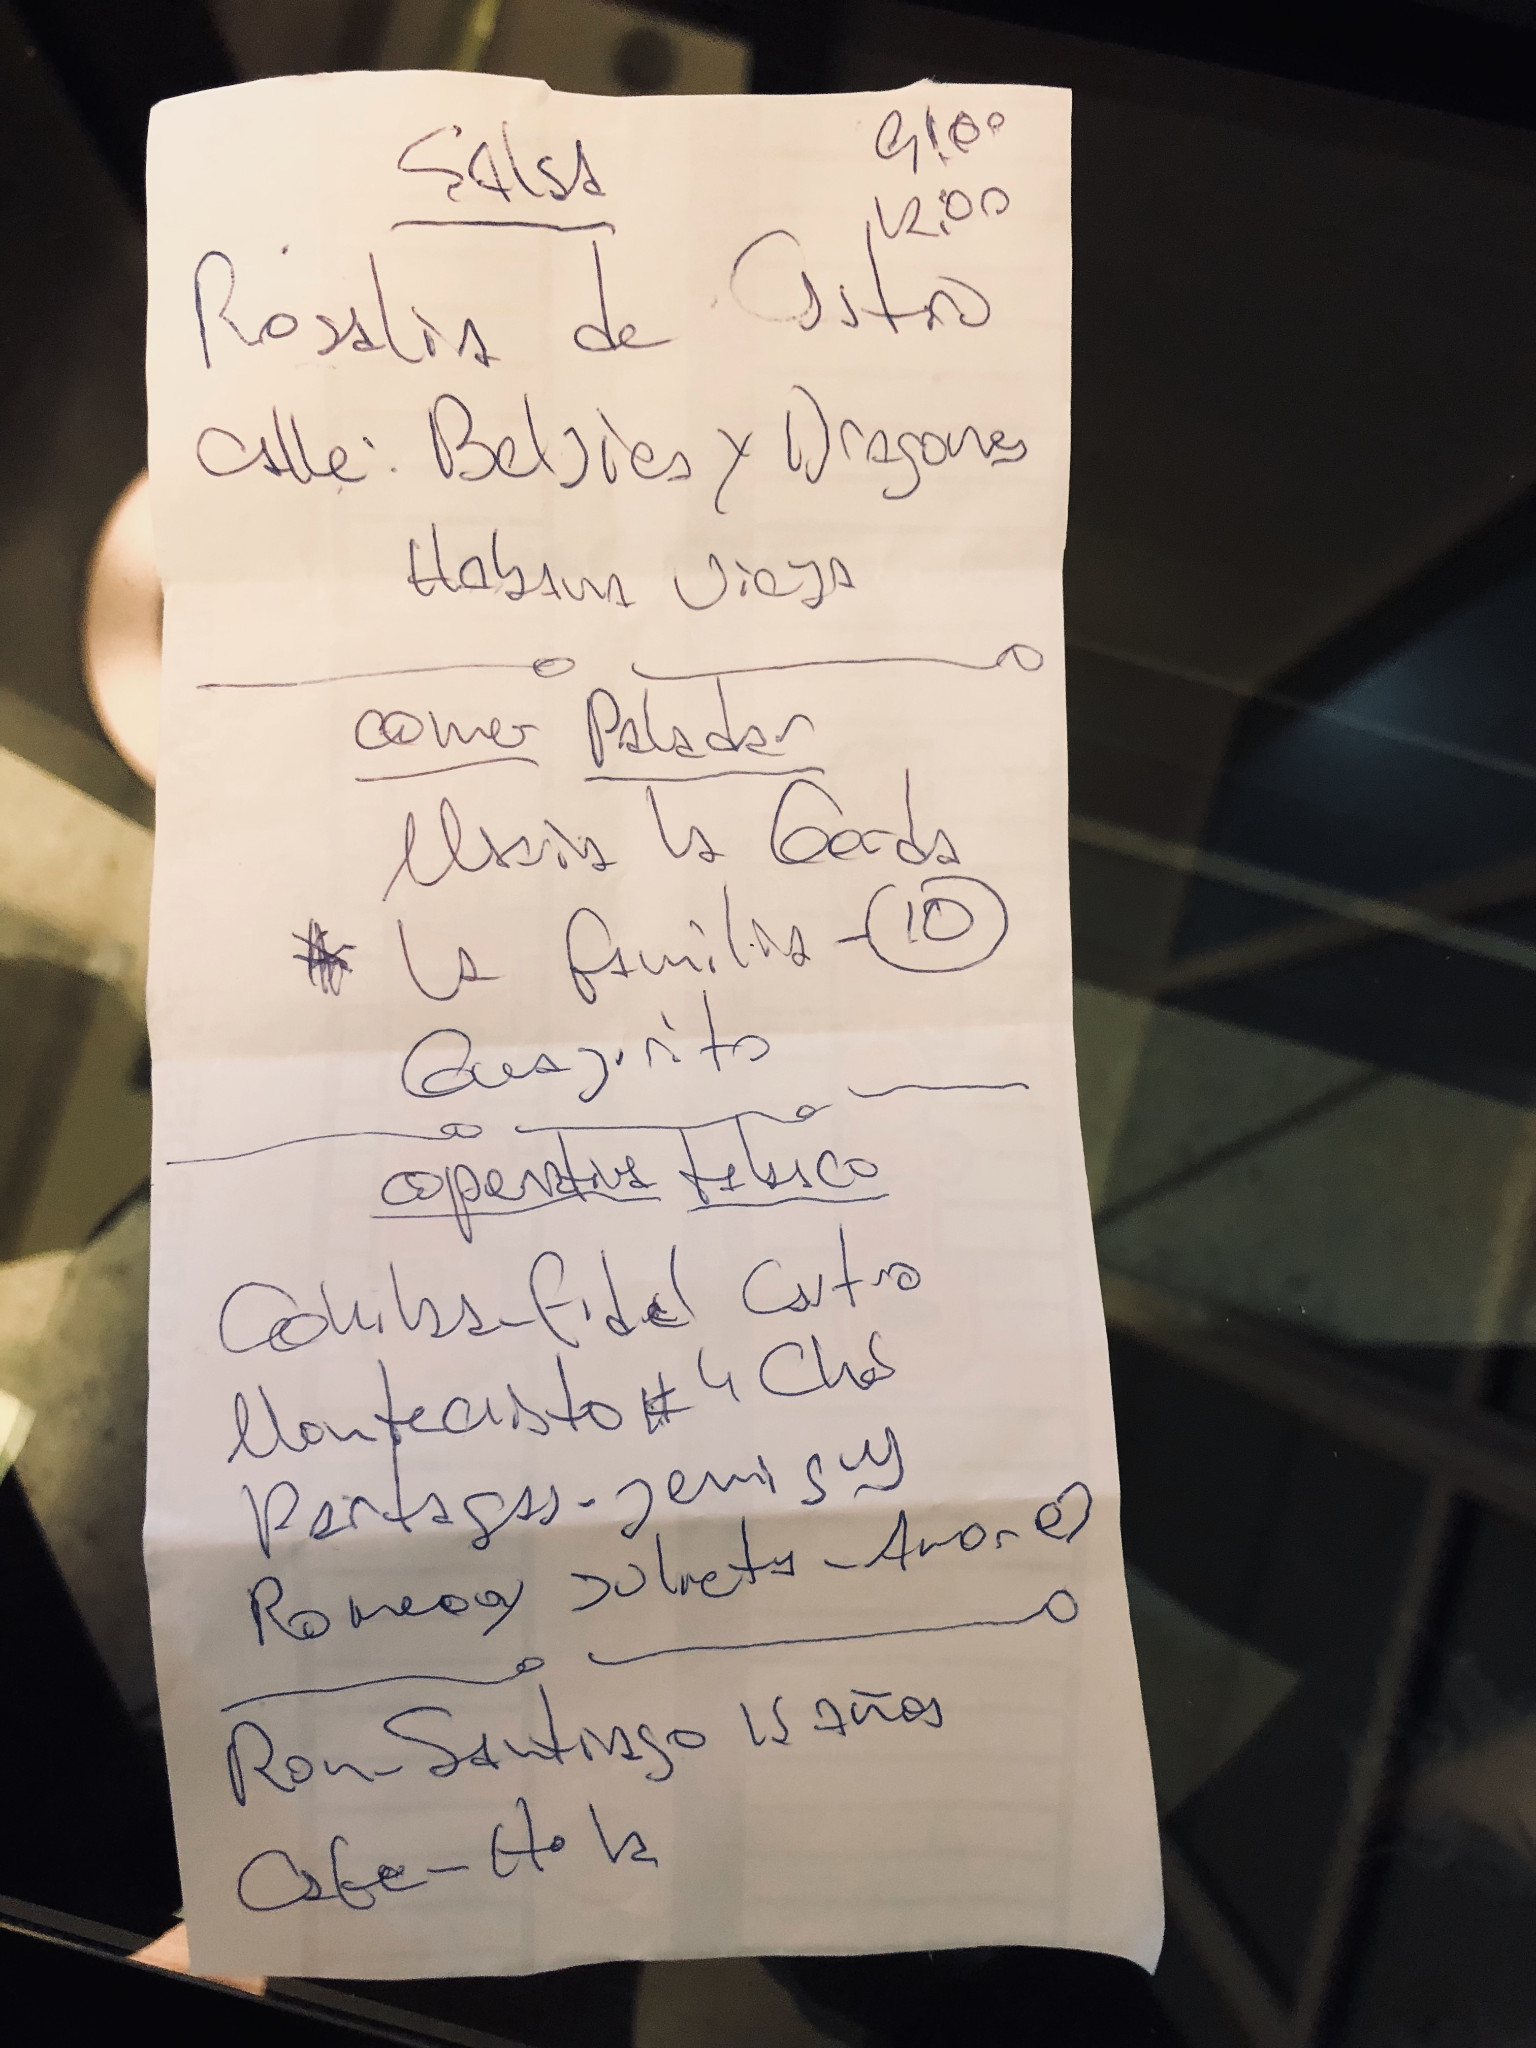 Salsa
9:00
12:00
Rosalia de Castro
Calle: Belsies y Dragones
Habana Vieja
comer Paladar
Maria la Gorda
* La familia - 10
Guajirito
coperativa tabaco
Cohibas - Fidel Castro
Montecristo #4 Che
Partagas - Jemi guy
Romeo y Julieta - Amor
Ron - Santiago 15 años
Cafe - Hola